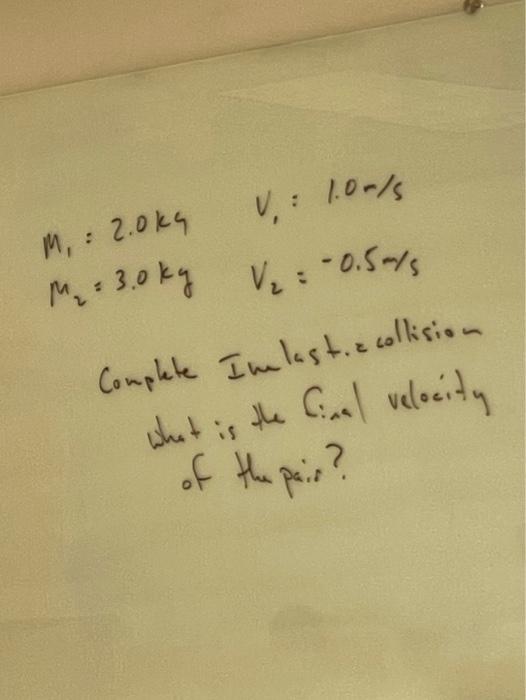 M₁ = 2.0 kg V₁ = 1.0 m/s
M₂ = 3.0 kg V₂ = -0.5 m/s
Complete Inelastic collision
What is the final velocity
of the pair?